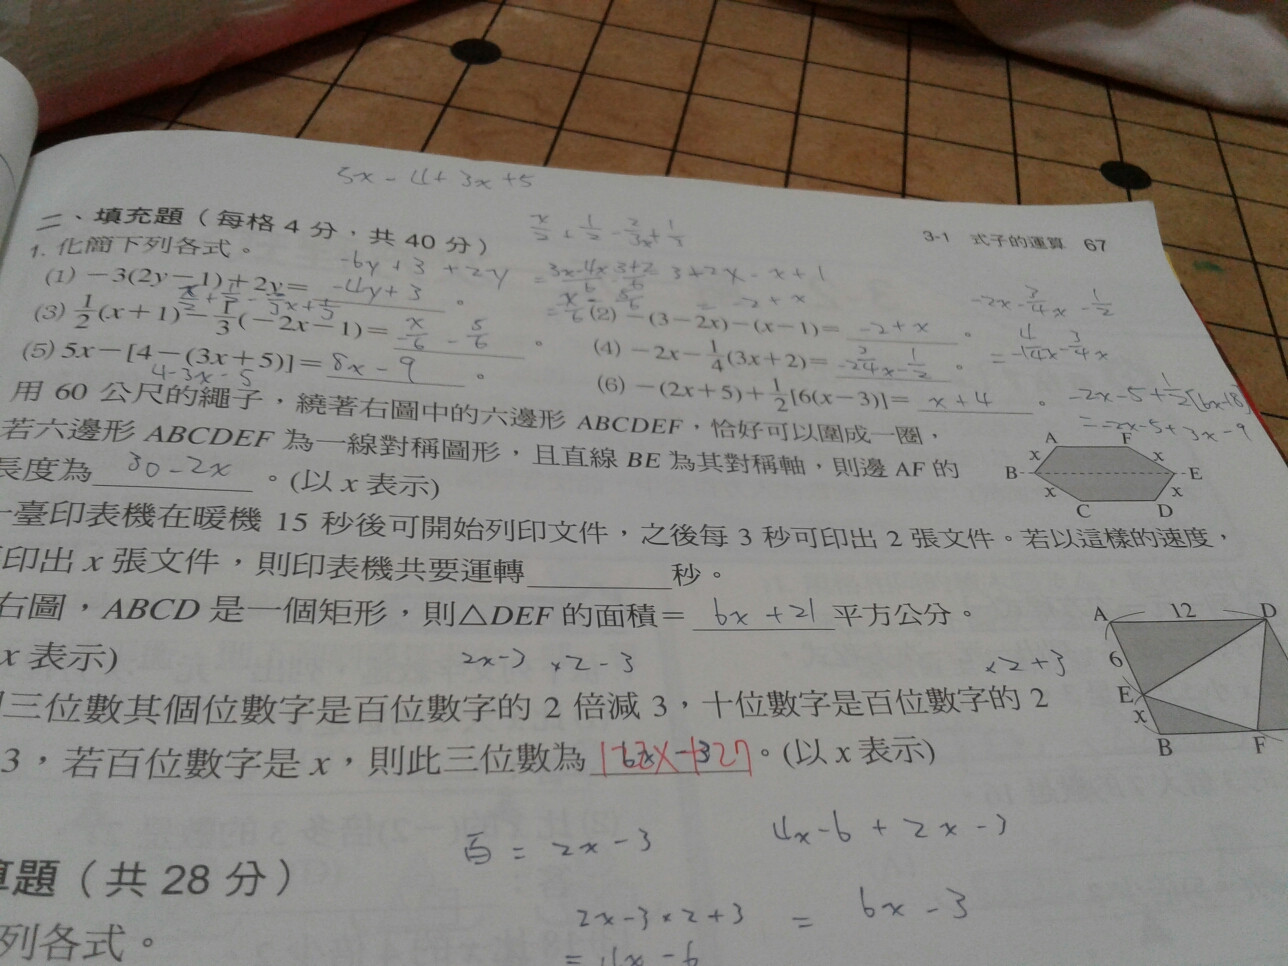 5x-4+3x+5
3-1 式子的運算 67
二、填充題(每格 4 分，共 40 分)
x/2+1/2-2/3x+1/3
1. 化簡下列各式。
-6y+3+2y
3+2x-x+1
(1) -3(2y-1)+2y= -4y+3 。
= -2+x
(2) -(3-2x)-(x-1)= -2+x 。
-2x-3/4x-1/2
(3) 1/2(x+1)-1/3(-2x-1)= x/-6 - 5/6 。
(4) -2x-1/4(3x+2)= -2 3/4x-1/2 。
(5) 5x-[4-(3x+5)]= 8x-9 。
4-3x-5
(6) -(2x+5)+1/2[6(x-3)]= x+4 。
-2x-5+1/2[6x-18]
=-2x-5+3x-9
用 60 公尺的繩子，繞著右圖中的六邊形 ABCDEF，恰好可以圍成一圈，
若六邊形 ABCDEF 為一線對稱圖形，且直線 BE 為其對稱軸，則邊 AF 的
長度為 30-2x 。(以 x 表示)
A F
x x
B E
x x
C D
一臺印表機在暖機 15 秒後可開始列印文件，之後每 3 秒可印出 2 張文件。若以這樣的速度，
印出 x 張文件，則印表機共要運轉 秒。
右圖，ABCD 是一個矩形，則△DEF 的面積= 6x+21 平方公分。
x 表示)
A 12 D
6
E
x
B F
2x-3 ×2-3
×2+3
三位數其個位數字是百位數字的 2 倍減 3，十位數字是百位數字的 2
3，若百位數字是 x，則此三位數為 6x-3 122x+27 。(以 x 表示)
百=2x-3
4x-6+2x-3
算題(共 28 分)
2x-3×2+3 = 6x-3
=4x-6
列各式。